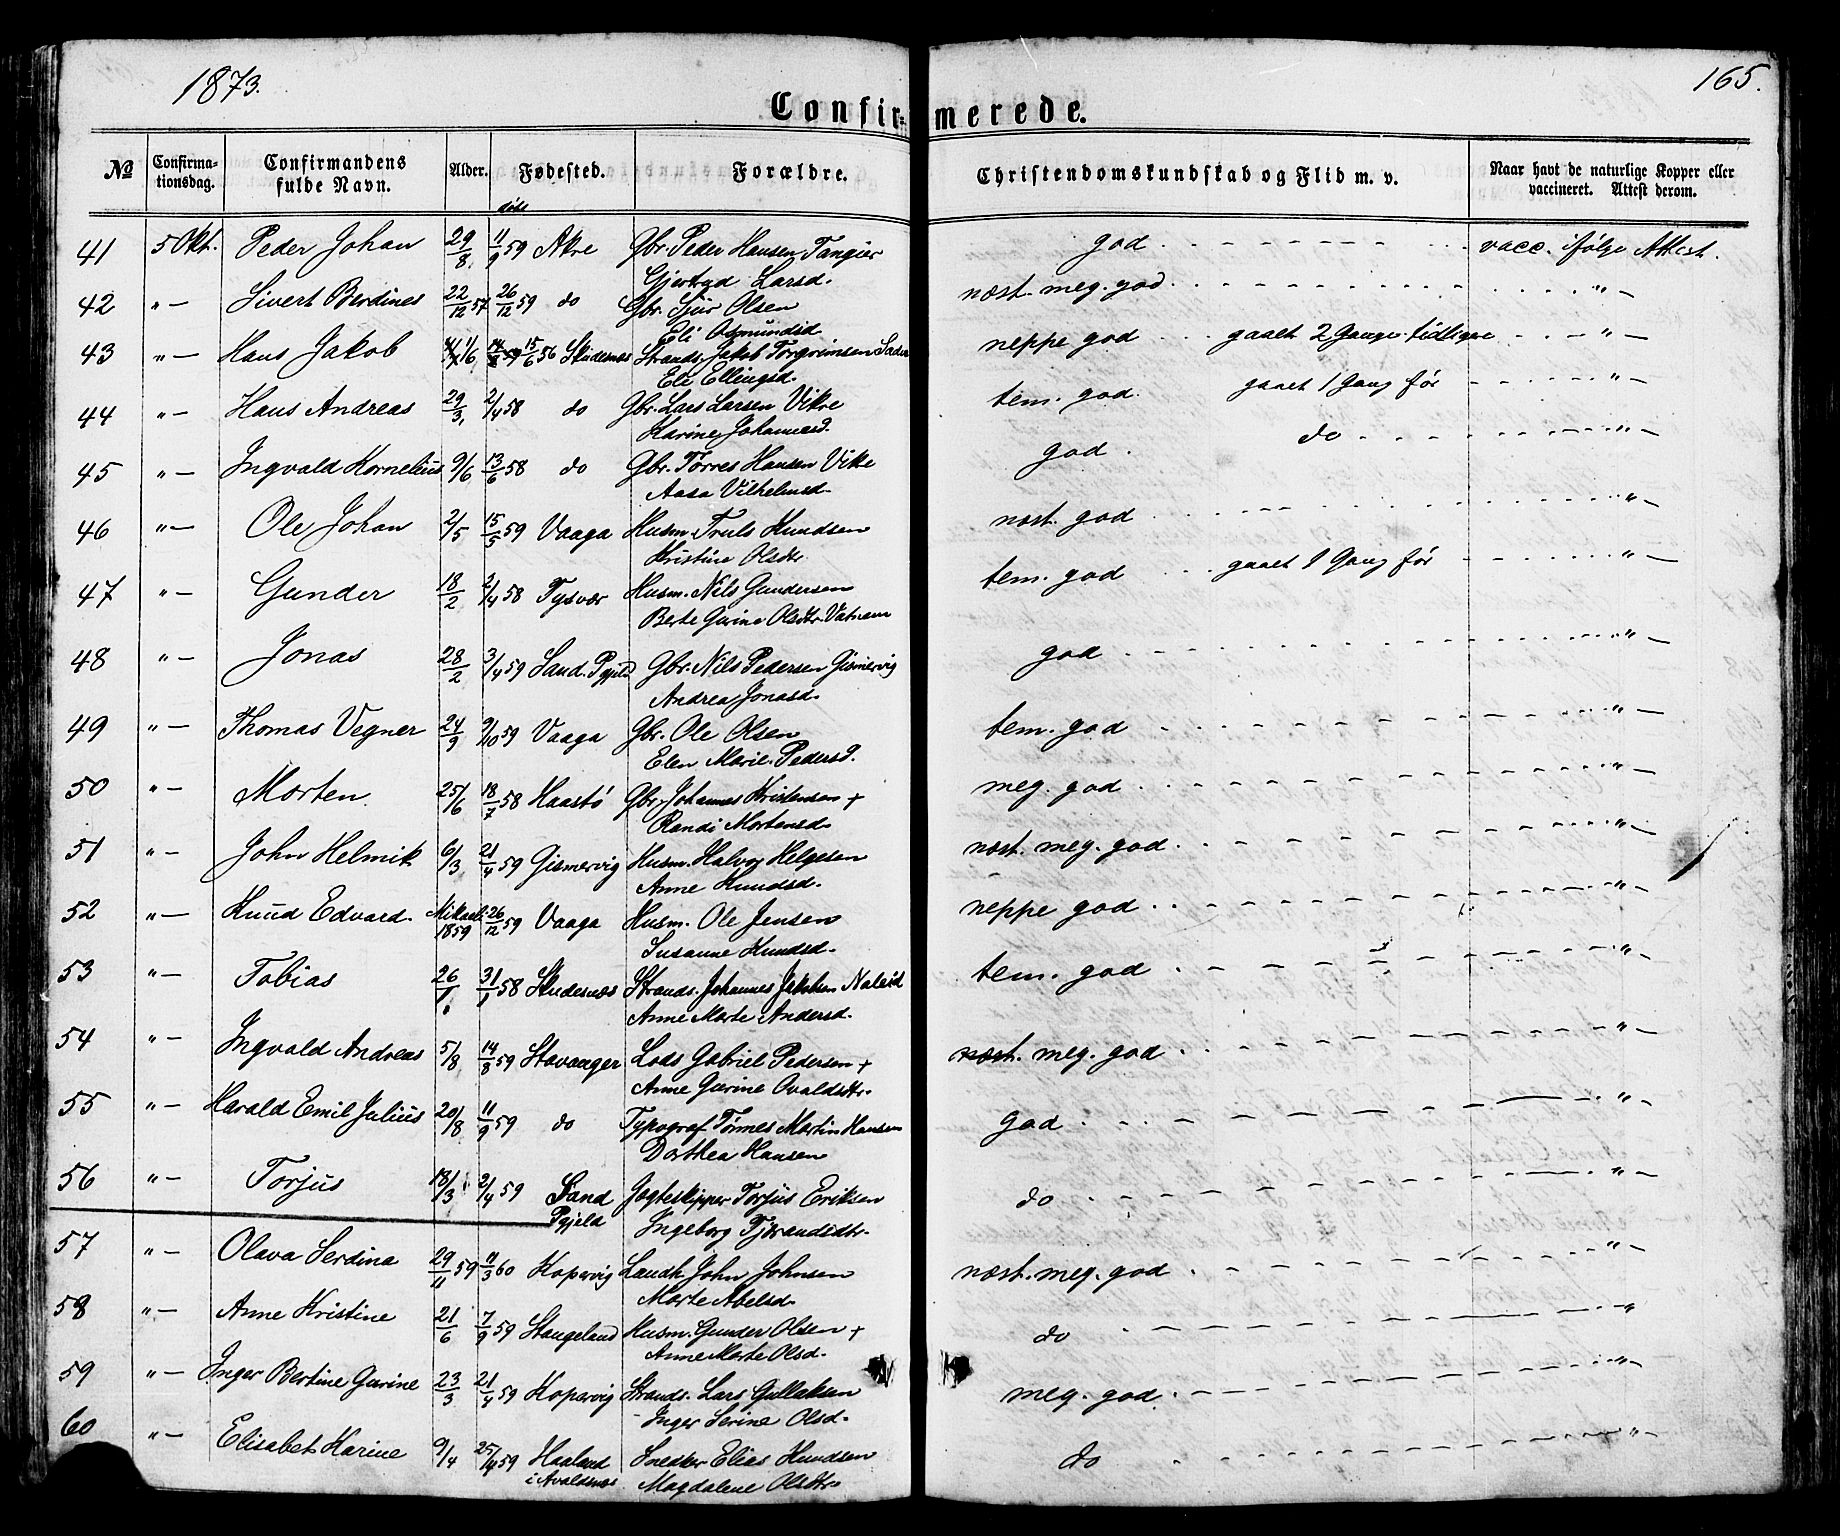 1873.
165.
Confir= merede.
No Confirma- tionsdag. Confirmandens fulde Navn. Alder. Fødested. Forældre. Christendomskundskab og Flid m. v. Naar havt de naturlige Kopper eller vaccineret. Attest derom.
døbt
41 5 Okt. Peder Johan 29/8 11/9 59 Akre Gbr. Peder Hansen Tangier god vacc. ifølge Attest.
Gjertrud Larsd.
42 "— Sivert Berdines 22/12 57 26/12 59 do Gbr. Sjur Olsen næst. meg. god "—
Eli Osmundsd
43 "— Hans Jakob 1/6 15/6 56 Skudesnæs Strands. Jakob Torgrimsen neppe god gaaet 2 Gange tidligere "—
Eli Ellingsd.
44 "— Hans Andreas 29/3 2/4 58 do Gbr. Lars Larsen Vikre tem. god. gaaet 1 Gang før "—
Karine Johannesd.
45 "— Ingvald Kornelius 9/6 13/6 58 do Gbr. Tørres Hansen Vike god. do "—
Aasa Vilhelmsd.
46 "— Ole Johan 2/5 15/5 59 Vaaga Husm. Truls Knudsen næst. god "—
Kristine Olsdtr
47 "— Gunder 18/2 2/4 58 Tysvær Husm. Nils Gundersen tem. god gaaet 1 Gang før "—
Berte Gurine Olsdtr. Vatnem
48 "— Jonas 28/2 3/4 59 Sand. Pgjeld Gbr. Nils Pedersen Gismervig god "—
Andrea Jonasd.
49 "— Thomas Vegner 24/9 9/10 59 Vaaga Gbr. Ole Olsen tem. god "—
Elen Marie Pedersd.
50 "— Morten 25/6 18/7 58 Haastø Gbr. Johannes Kristensen + meg. god "—
Randi Mortensd.
51 "— John Helmik 6/3 21/4 59 Gismervig Husm. Halvor Helgesen næst. meg. god "—
Anne Knudsd.
52 "— Knud Edvard. Mikaeli 1859 26/12 59 Vaaga Husm. Ole Jensen neppe god "—
Susanne Knudsd.
53 "— Tobias 26/1 31/1 58 Skudesnæs Strands. Johannes Jakobsen Naleid tem. god "—
Anne Marte Andersd.
54 "— Ingvald Andreas 5/8 14/8 59 Stavanger Lods Gabriel Pedersen + næst. meg. god "—
Anne Gurine Ovaldsdtr.
55 "— Harald Emil Julius 20/8 11/9 59 do Typograf Tønnes Martin Hansen god "—
Dorthea Hansen
56 "— Torjus 18/3 2/4 59 Sand Pgjeld Jagteskipper Torjus Eriksen do "—
Ingeborg Tjerandsdtr.
57 "— Olava Serdina 29/11 59 11/3 60 Kopervig Landh. John Johnsen næst. meg. god "—
Marte Abelsd.
58 "— Anne Kristine 21/6 7/9 59 Stangeland Husm. Gunder Olsen + do "—
Anne Marte Olsd.
59 "— Inger Bertine Gurine 23/3 21/4 59 Kopervig Strands. Lars Gullaksen meg. god. "—
Inger Serine Olsd.
60 "— Elisabet Karine 9/4 25/4 59 Haaland Snedker Elias Knudsen do "—
i Avaldsnæs Magdalene Olsdtr